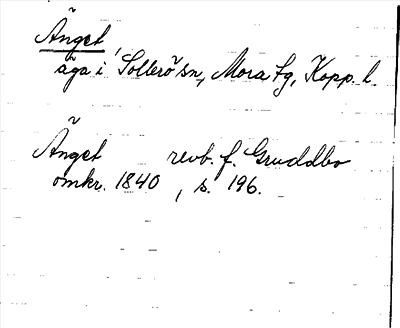 Änget,
äga i Sollerö sn, Mora tg, Kopp. l.
Änget revb. f. Gruddbo
omkr. 1840, s. 196.